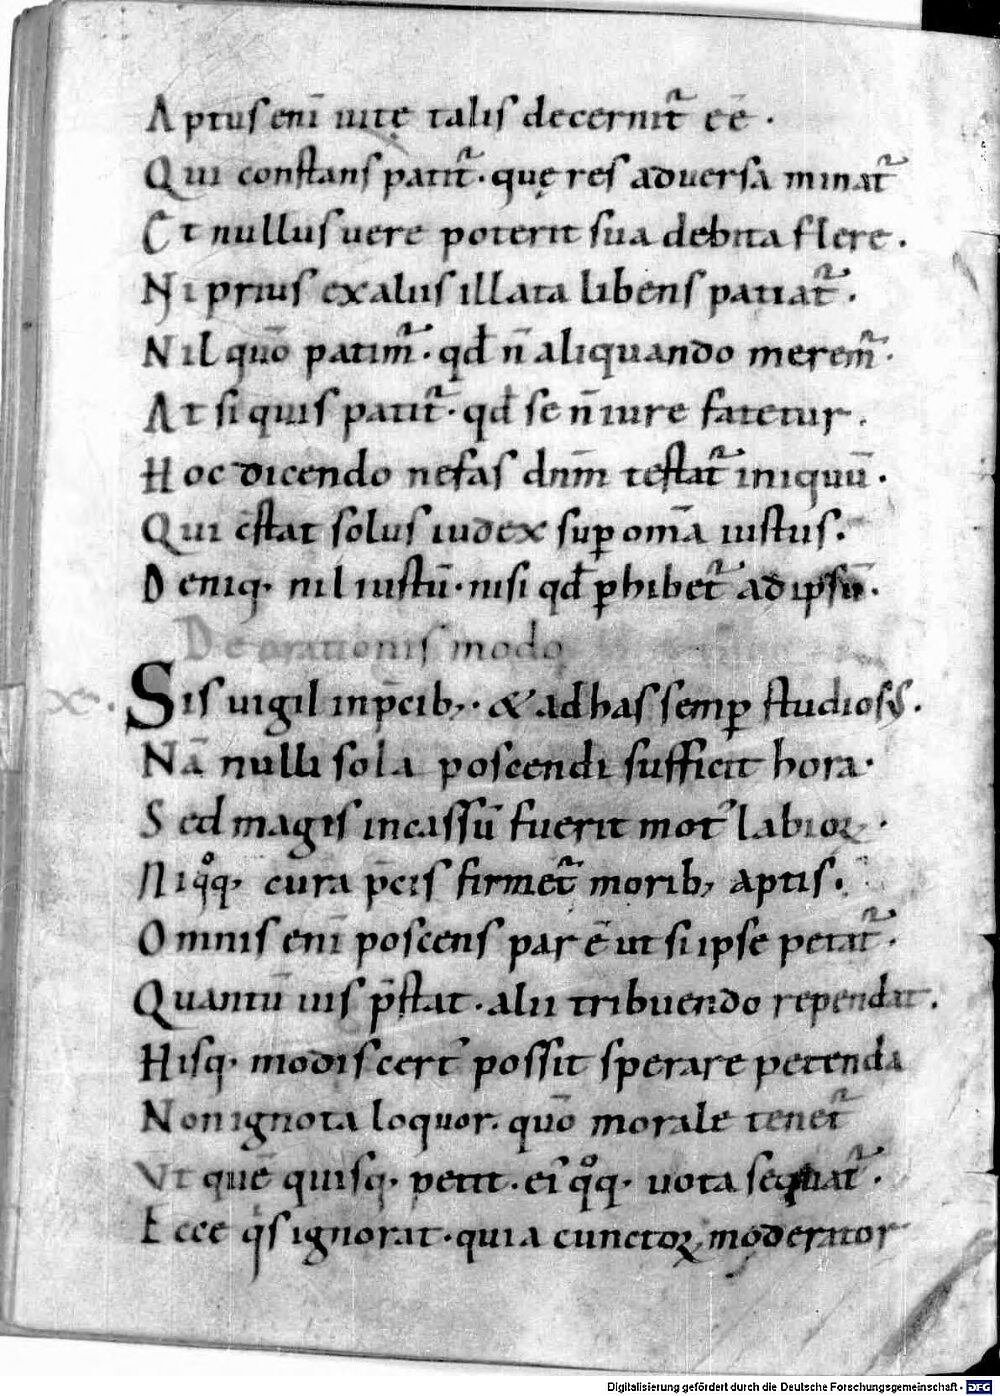 Aptus enī uitę talis decernit᷑ eē ·
Qui constans patit᷑ · quę res aduersa minat᷑
Et nullus uere poterit sua debita flere .
Ni prius ex aliis illata libens patiat᷑ .
Nil quō patim᷑ · qđ n̄ aliquando merem᷑ .
At si quis patit᷑ · qđ se n̄ iure fatetur .
Hoc dicendo nefas dnm̄ testat᷑ iniquū .
Qui c̄stat solus iudex suꝑ omīa iustus .
Deniq · nil iustū · nisi qđ ꝑhibet᷑ ad ipsū .
De orationis modo
x · Sis uigil in p̄cib; · & ad has semꝑ studios; .
Nā nulli sola poscendi sufficit hora .
Sed magis incassū fuerit mot᾽ labioꝝ .
Ni qͦq · cura p̄cis firmet᷑ morib; aptis .
Omnis enī poscens par ē ut si ipse petat᷑ .
Quantū uis p̄stat · alii tribuendo rependat .
Hisq · modis cert᾽ possit sperare petenda
Non ignota loquor . quō morale tenet᷑
Ut quē quisq · petit · eī qͦq · uota sequat᷑ .
Ecce qͥs ignorat · quia cunctoꝝ moderator
Digitalisierung gefördert durch die Deutsche Forschungsgemeinschaft - DFG